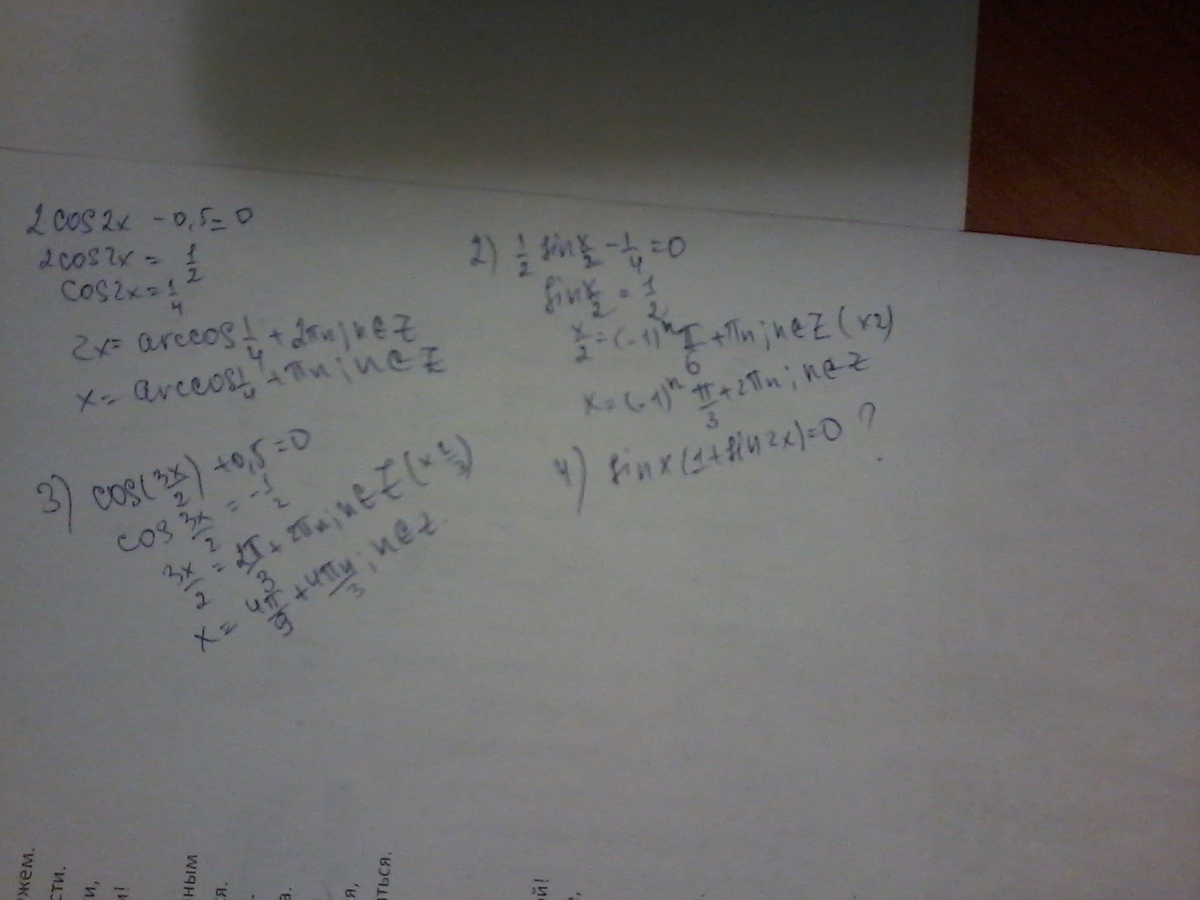 2cos2x - 0,5 = 0
2cos2x = 1/2
cos2x = 1/4
2x = arccos 1/4 + 2πn; n∈Z
x = arccos 1/4 + πn; n∈Z
2) 1/2 sin x/2 - 1/4 = 0
sin x/2 = 1/2
x/2 = (-1)^n π/6 + πn; n∈Z (x2)
x = (-1)^n π/3 + 2πn; n∈Z
3) cos(3x/2) + 0,5 = 0
cos 3x/2 = -1/2
3x/2 = 2π/3 + 2πn; n∈Z (x 2/3)
x = 4π/9 + 4πn/3; n∈Z
4) sinx(1+sin2x)=0 ?
ужем.
сти.
и,
и!
ным
ся.
а.
я,
ться.
ой!